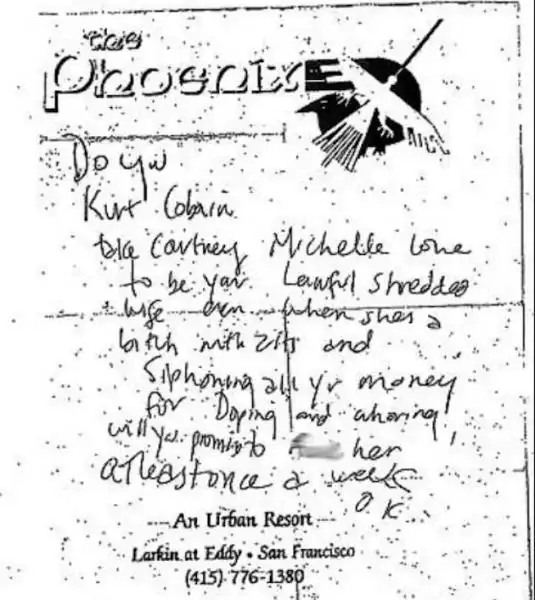 the
Phoenix
Do you
Kurt Cobain
take Cortney Michelle Love
to be your Lawful shredded
wife even when shes a
bitch with zits and
siphoning all yr money
for Doping and whoring
will you promise to her
atleastonce a week
OK
An Urban Resort
Larkin at Eddy • San Francisco
(415) 776-1380